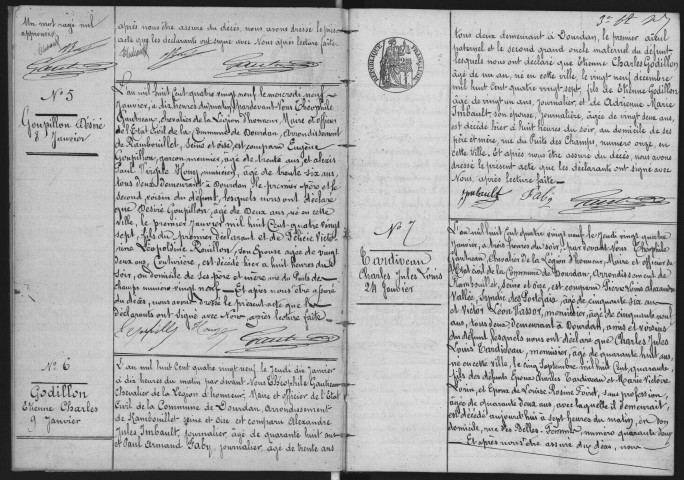 Un mot rayé nul
après nous être assuré du décès, nous avons dressé le prés
acte que les déclarants ont signé avec Nous après lecture faite.
N° 5
Goupillon Désiré
8 Janvier
L'an mil huit Cent quatre vingt neuf le mercredi neuf
Janvier, à dix heures du matin, pardevant Nous Théophile
Gautreau, chevalier de la Légion d'honneur, Maire et officier
de l'Etat Civil de la Commune de Dourdan, arrondissement
de Rambouillet, Seine et oise, est comparu Eugène
Goupillon, garçon meunier, âgé de trente ans et
Paul musicien, âgé de trente six ans,
tous deux demeurant à Dourdan, le premier père et le
second voisin du défunt, lesquels nous ont déclaré
que Désiré Goupillon, âgé de Deux ans, né en cette
ville, le premier Janvier mil huit Cent quatre vingt
sept, fils du premier déclarant et de Félicie Victo
rine Léopoldine Rouillon, son Epouse âgée de vingt
deux ans, Couturière, est décédé hier à huit heures du
Soir, au domicile de ses père et mère rue du Puits des
champs numéro vingt neuf — Et après nous être assuré
du décès, nous avons dressé le présent acte que les
Déclarants ont signé avec Nous, après lecture faite
N° 6
Godillon
Etienne Charles
9 Janvier
L'an mil huit Cent quatre vingt neuf, le Jeudi dix janvier
à dix heures du matin par devant Nous Théophile Gautreau
Chevalier de la Légion d'honneur, Maire et officier de l'Etat
Civil de la Commune de Dourdan, Arrondissement
de Rambouillet Seine et oise est comparu Alexandre
Jules Imbault, journalier, âgé de quarante huit ans
et Paul Armand Faby, journalier, âgé de trente ans
tous deux demeurant à Dourdan, le premier aïeul
paternel et le second grand oncle maternel du défunt
lesquels nous ont déclaré que Etienne Charles Godillon
âgé de un an, né en cette ville, le vingt neuf décembre
mil huit Cent quatre vingt sept, fils de Etienne Godillon
âgé de vingt ans, journalier, et de Adrienne Marie
Imbault, son épouse, journalière, âgée de vingt deux ans,
est décédé hier à huit heures du soir, au domicile de ses
père et mère, rue du Puits des Champs, numéro onze, en
cette Ville. Et après nous être assuré du décès, nous avons
dressé le présent acte que les déclarants ont signé avec
Nous, après lecture faite —
Imbault Faby
N° 7
Tardiveau
Charles Jules Louis
24 Janvier
L'an mil huit Cent quatre vingt neuf le Jeudi vingt quatre
Janvier, à trois heures du soir, par devant Nous Théophile
Gautreau Chevalier de la Légion d'honneur, Maire et officier de
l'Etat Civil de la Commune de Dourdan, Arrondissement de
Rambouillet, Seine et oise, est comparu Pierre Louis Alexandre
Vallée, âgé de cinquante six ans
et Victor Léon Vassor, menuisier, âgé de cinquante neuf
ans, tous deux demeurant à Dourdan, amis et voisins
du défunt lesquels nous ont déclaré que Charles Jules
Louis Tardiveau, menuisier, âgé de quarante huit ans,
né en cette ville, le cinq Septembre mil huit Cent quarante,
fils des défunts Epoux Charles Tardiveau et Marie Victoire
Lorin, et Epoux de Louise Rosine Poirot, sans profession,
âgée de quarante deux ans, avec laquelle il demeurait,
est décédé aujourd'hui à sept heures du matin, en son
domicile, rue des Belles-Femmes, numéro quarante deux
Et après nous être assuré du décès, nous